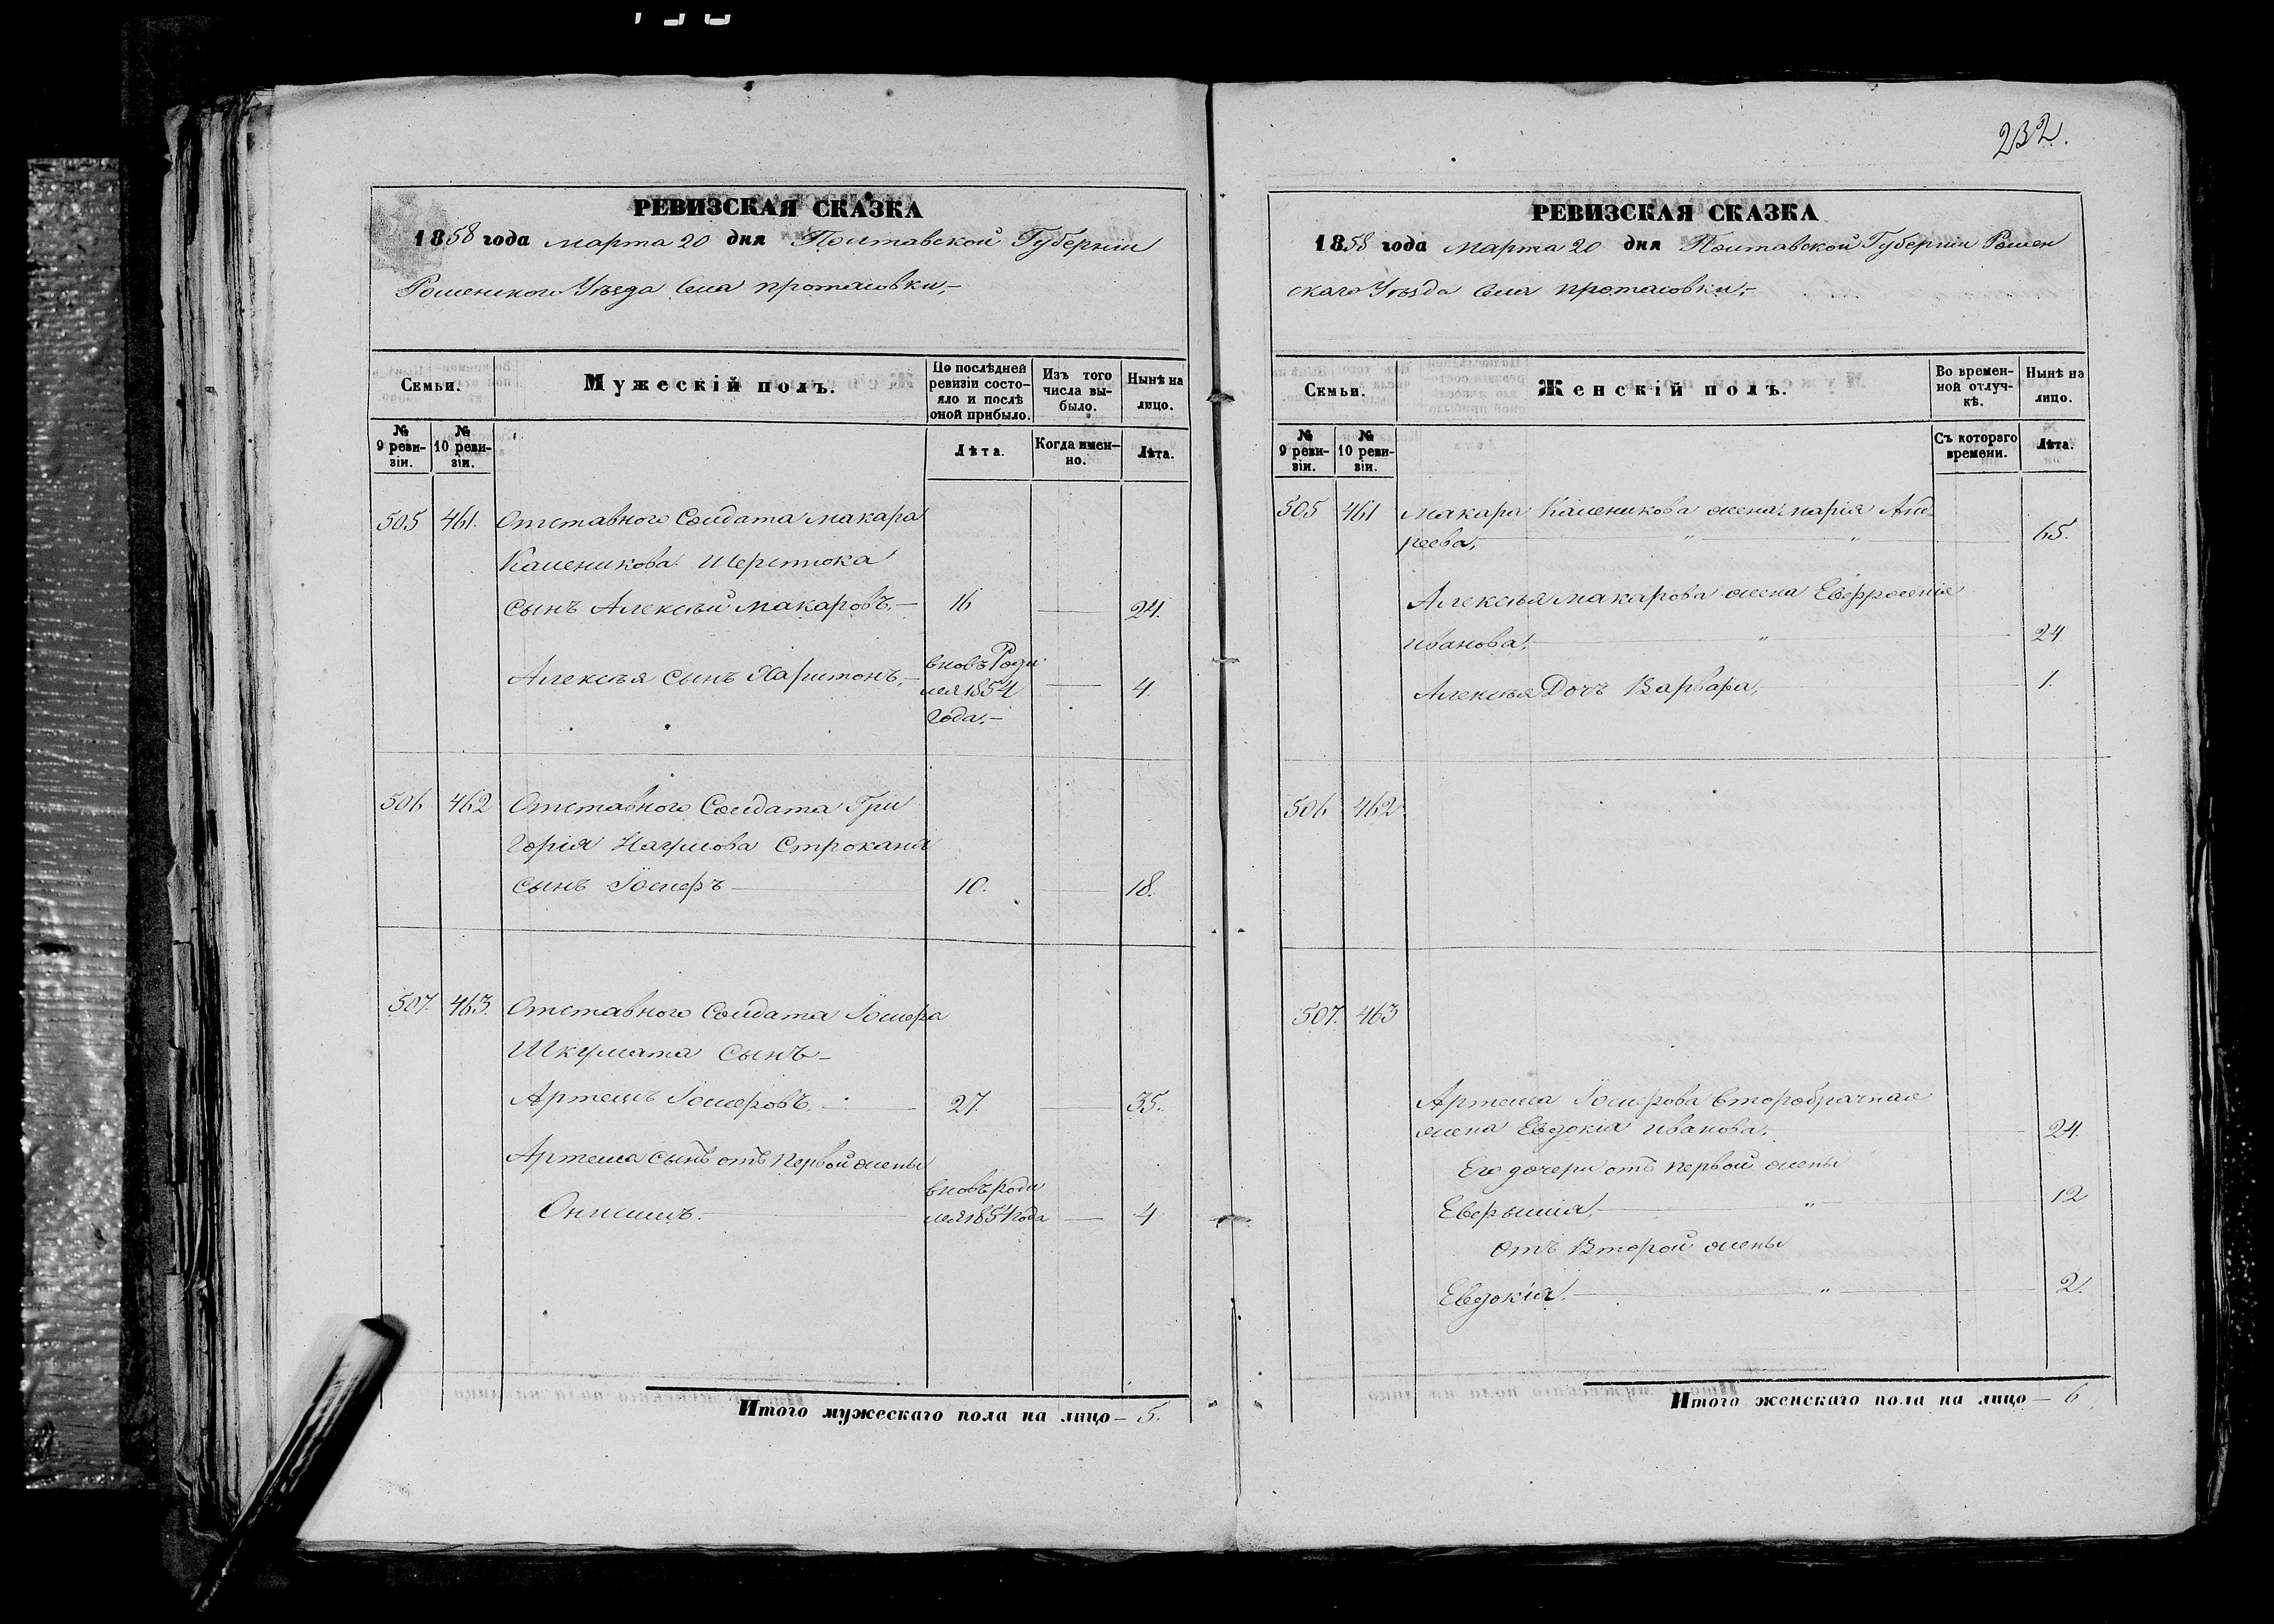 232.
РЕВИЗСКАЯ СКАЗКА
1858 года марта 20 дня Полтавской Губерніи
Роменского Уѣзда Села протасовки,-
Семьи.
Мужескій полъ.
По послѣдней ревизіи состояло и послѣ оной прибыло.
Изъ того числа выбыло.
Нынѣ на лицо.
№ 9 ревизіи.
№ 10 ревизіи.
Лѣта.
Когда именно.
Лѣта.
505 461. Отставного Солдата макара
Каленикова Шерстюка
сынъ Алексѣй макаровъ,- 16 24.
Алексѣя сынъ Харитонъ,- вновь Роди
лся 1854 4.
года,-
506 462 Отставного Солдата Гри
горія Наумова Строканя
сынъ Іосифъ 10. 18.
507. 463. Отставного Солдата Іосифа
Шкумата сынъ-
Артемъ Іосифовъ, 27. 35.
Артема сынъ отъ первой жены
вновь роди
Онисимъ. лся 1854 года 4
Итого мужескаго пола на лицо - 5.
РЕВИЗСКАЯ СКАЗКА
1858 года марта 20 дня Полтавской Губерніи Ромен
скаго Уѣзда Села протасовки,-
Семьи.
Женскій полъ.
Во временной отлучкѣ.
Нынѣ на лицо.
№ 9 ревизіи.
№ 10 ревизіи.
Съ котораго времени.
Лѣта.
505 461 Макара Каленикова жена марія Анд
реева, " " 65.
Алексѣя макарова жена Евфросинія
иванова, " 24
Алексѣя Дочь Варвара, 1.
506 462.
507. 463
Артема Іосифова второбрачная
жена Евдокія иванова, 24.
Его дочери отъ первой жены
" 12
отъ Второй жены
Евдокія. " 2.
Итого женскаго пола на лицо - 6